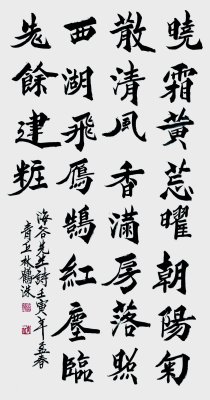 曉霜黃蕊曜朝陽菊
散清風香滿房落照
西湖飛鴈鵠紅塵臨
先餘建粧
海谷先生詩壬寅年立春
青丘林鶴洙